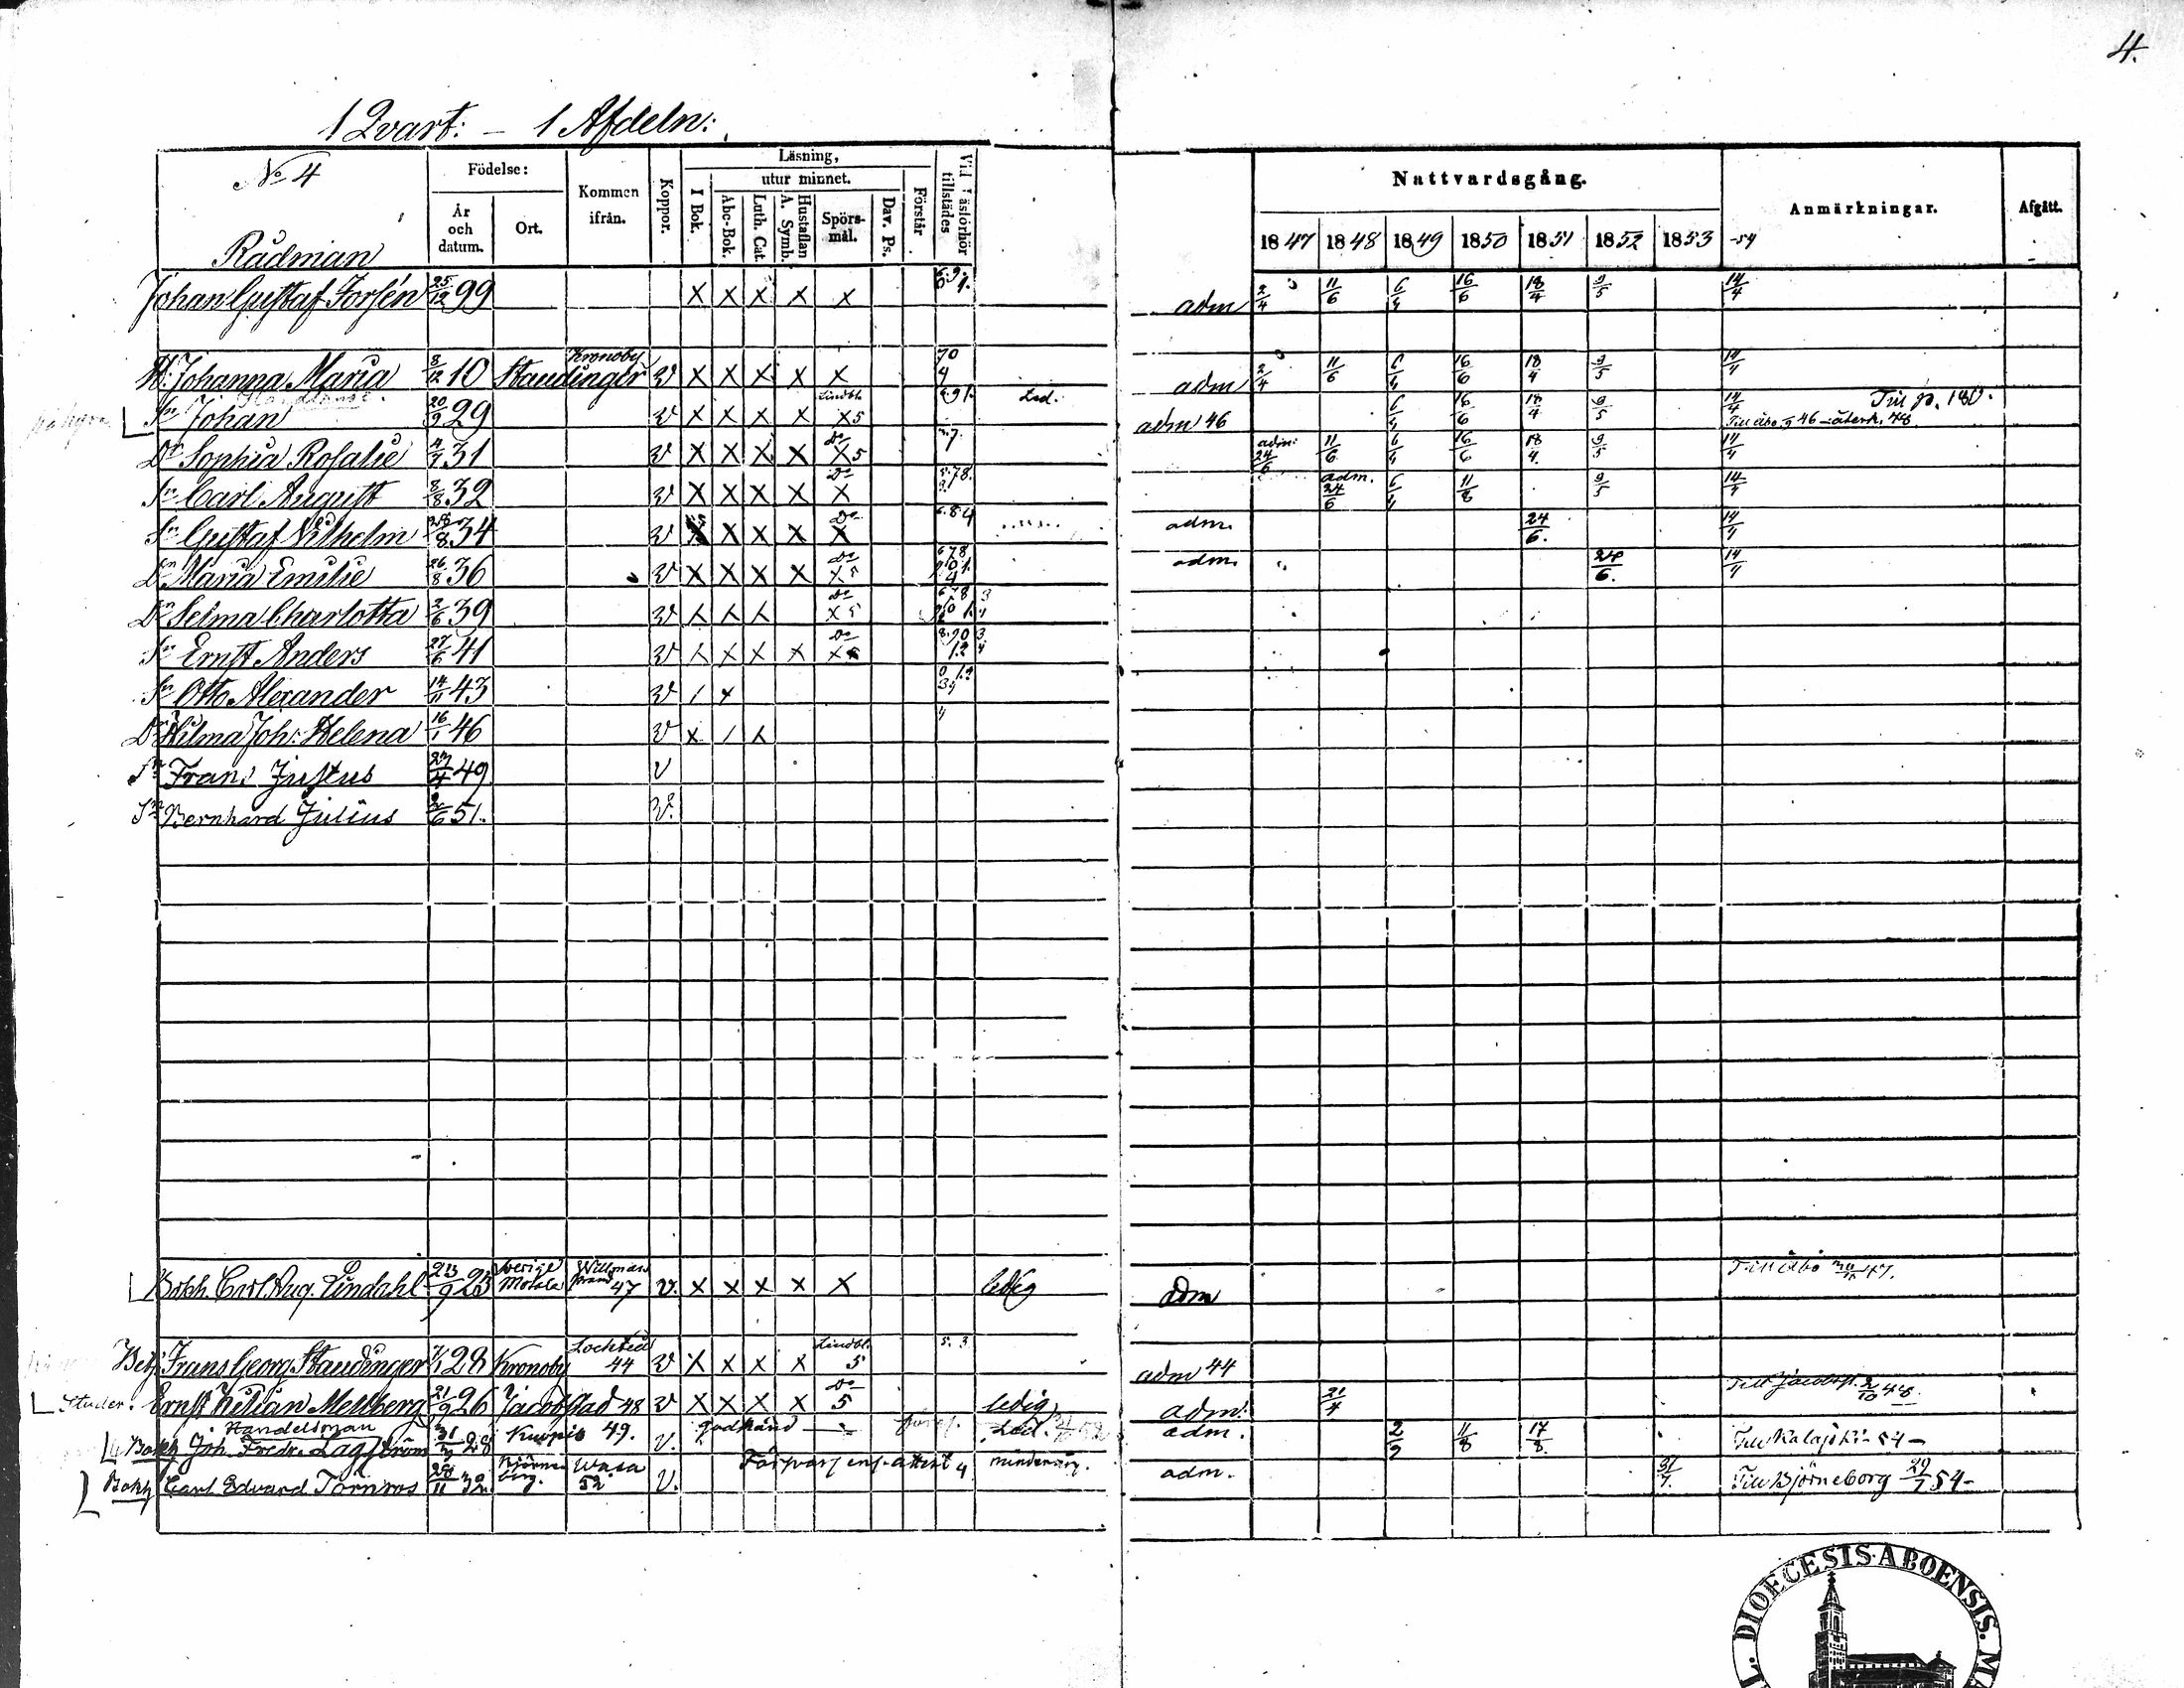 4.
1 Qvart: – 1 Afdeln:
No 4
Födelse:
År och datum.
Ort.
Kommen ifrån.
Koppor.
Läsning,
I Bok.
utur minnet.
Abc-Bok.
Luth. Cat.
Hustaflan A. Symb.
Spörs-mål.
Dav. Ps.
Förstår
Vid Läsförhör tillstädes
Nattvardsgång.
1847 1848 1849 1850 1851 1852 1853 -54
Anmärkningar.
Afgått.
Rådman
Johan Gustaf Forsén 25/12 99 X X X X X adm 2/4 11/6 6/4 16/6 18/4 9/5 14/4
Kronoby
H: Johanna Maria 8/12 10 Staudinger v X X X X X 70 4 adm 2/4 11/6 6/4 16/6 18/4 9/5 14/4
Sn Johan 20/9 29 v X X X X Lindbl. X5 Led. adm 46 6/4 16/6 18/4 9/5 14/4 Till p. 180.
Dr Sophia Rosalie 4/7 31 v X X X X Do X5 adm: 24/6 11/6 6/4 16/6 18/4. 9/5 14/4
Sn Carl August 8/8 32 v X X X X Do X adm. 24/6 6/4 11/8 9/5 14/4
Sn Gustaf Vilhelm 28/8 34 v X X X X Do X 6.84 adm. 24/6. 14/4
Dr Maria Emilie 26/8 36 v X X X X Do X5 adm. 24/6. 14/4
Dr Selma Charlotta 2/6 39 v Do X5
Sn Ernst Anders 27/6 41 v X X X Do
Sn Otto Alexander 14/11 43 v
Dr Hilma Joh: Helena 16/1 46 v
Sn Frans Justus 27/4 49 v
Sn Bernhard Julius 2/6 51. v.
Bokh. Carl Aug. Lindahl 23/9 25 Sverige Motala Willmanstrand 47 v. X X X X X ledig adm Till Åbo 47.
Betj: Frans Georg Staudinger 7/1 28 Kronoby Lochteå 44 v X X X X Lindbl. 5 5. 3 adm 44
Studer. Ernst Kilian Mellberg 21/9 26 Jacobstad 48 v X X X X Do 5 ledig adm: 21/4 Till Jacobst. 2/10 48.
Handelsman
Bokh Joh. Fredr. Lagström 28 Kuopio 49. v. godkänd Led. adm. 2/9 11/8 17/8. Till Kalajoki - 54 –
Bokh Carl Edvard Törnroos 28/11 32 Björneborg. Wasa 52 v. Försvarsl. enl. attest 4 minderårig. adm. 31/7. Till Björneborg 29/7 54 –
L. DIOECESIS·ABOENSIS. MA